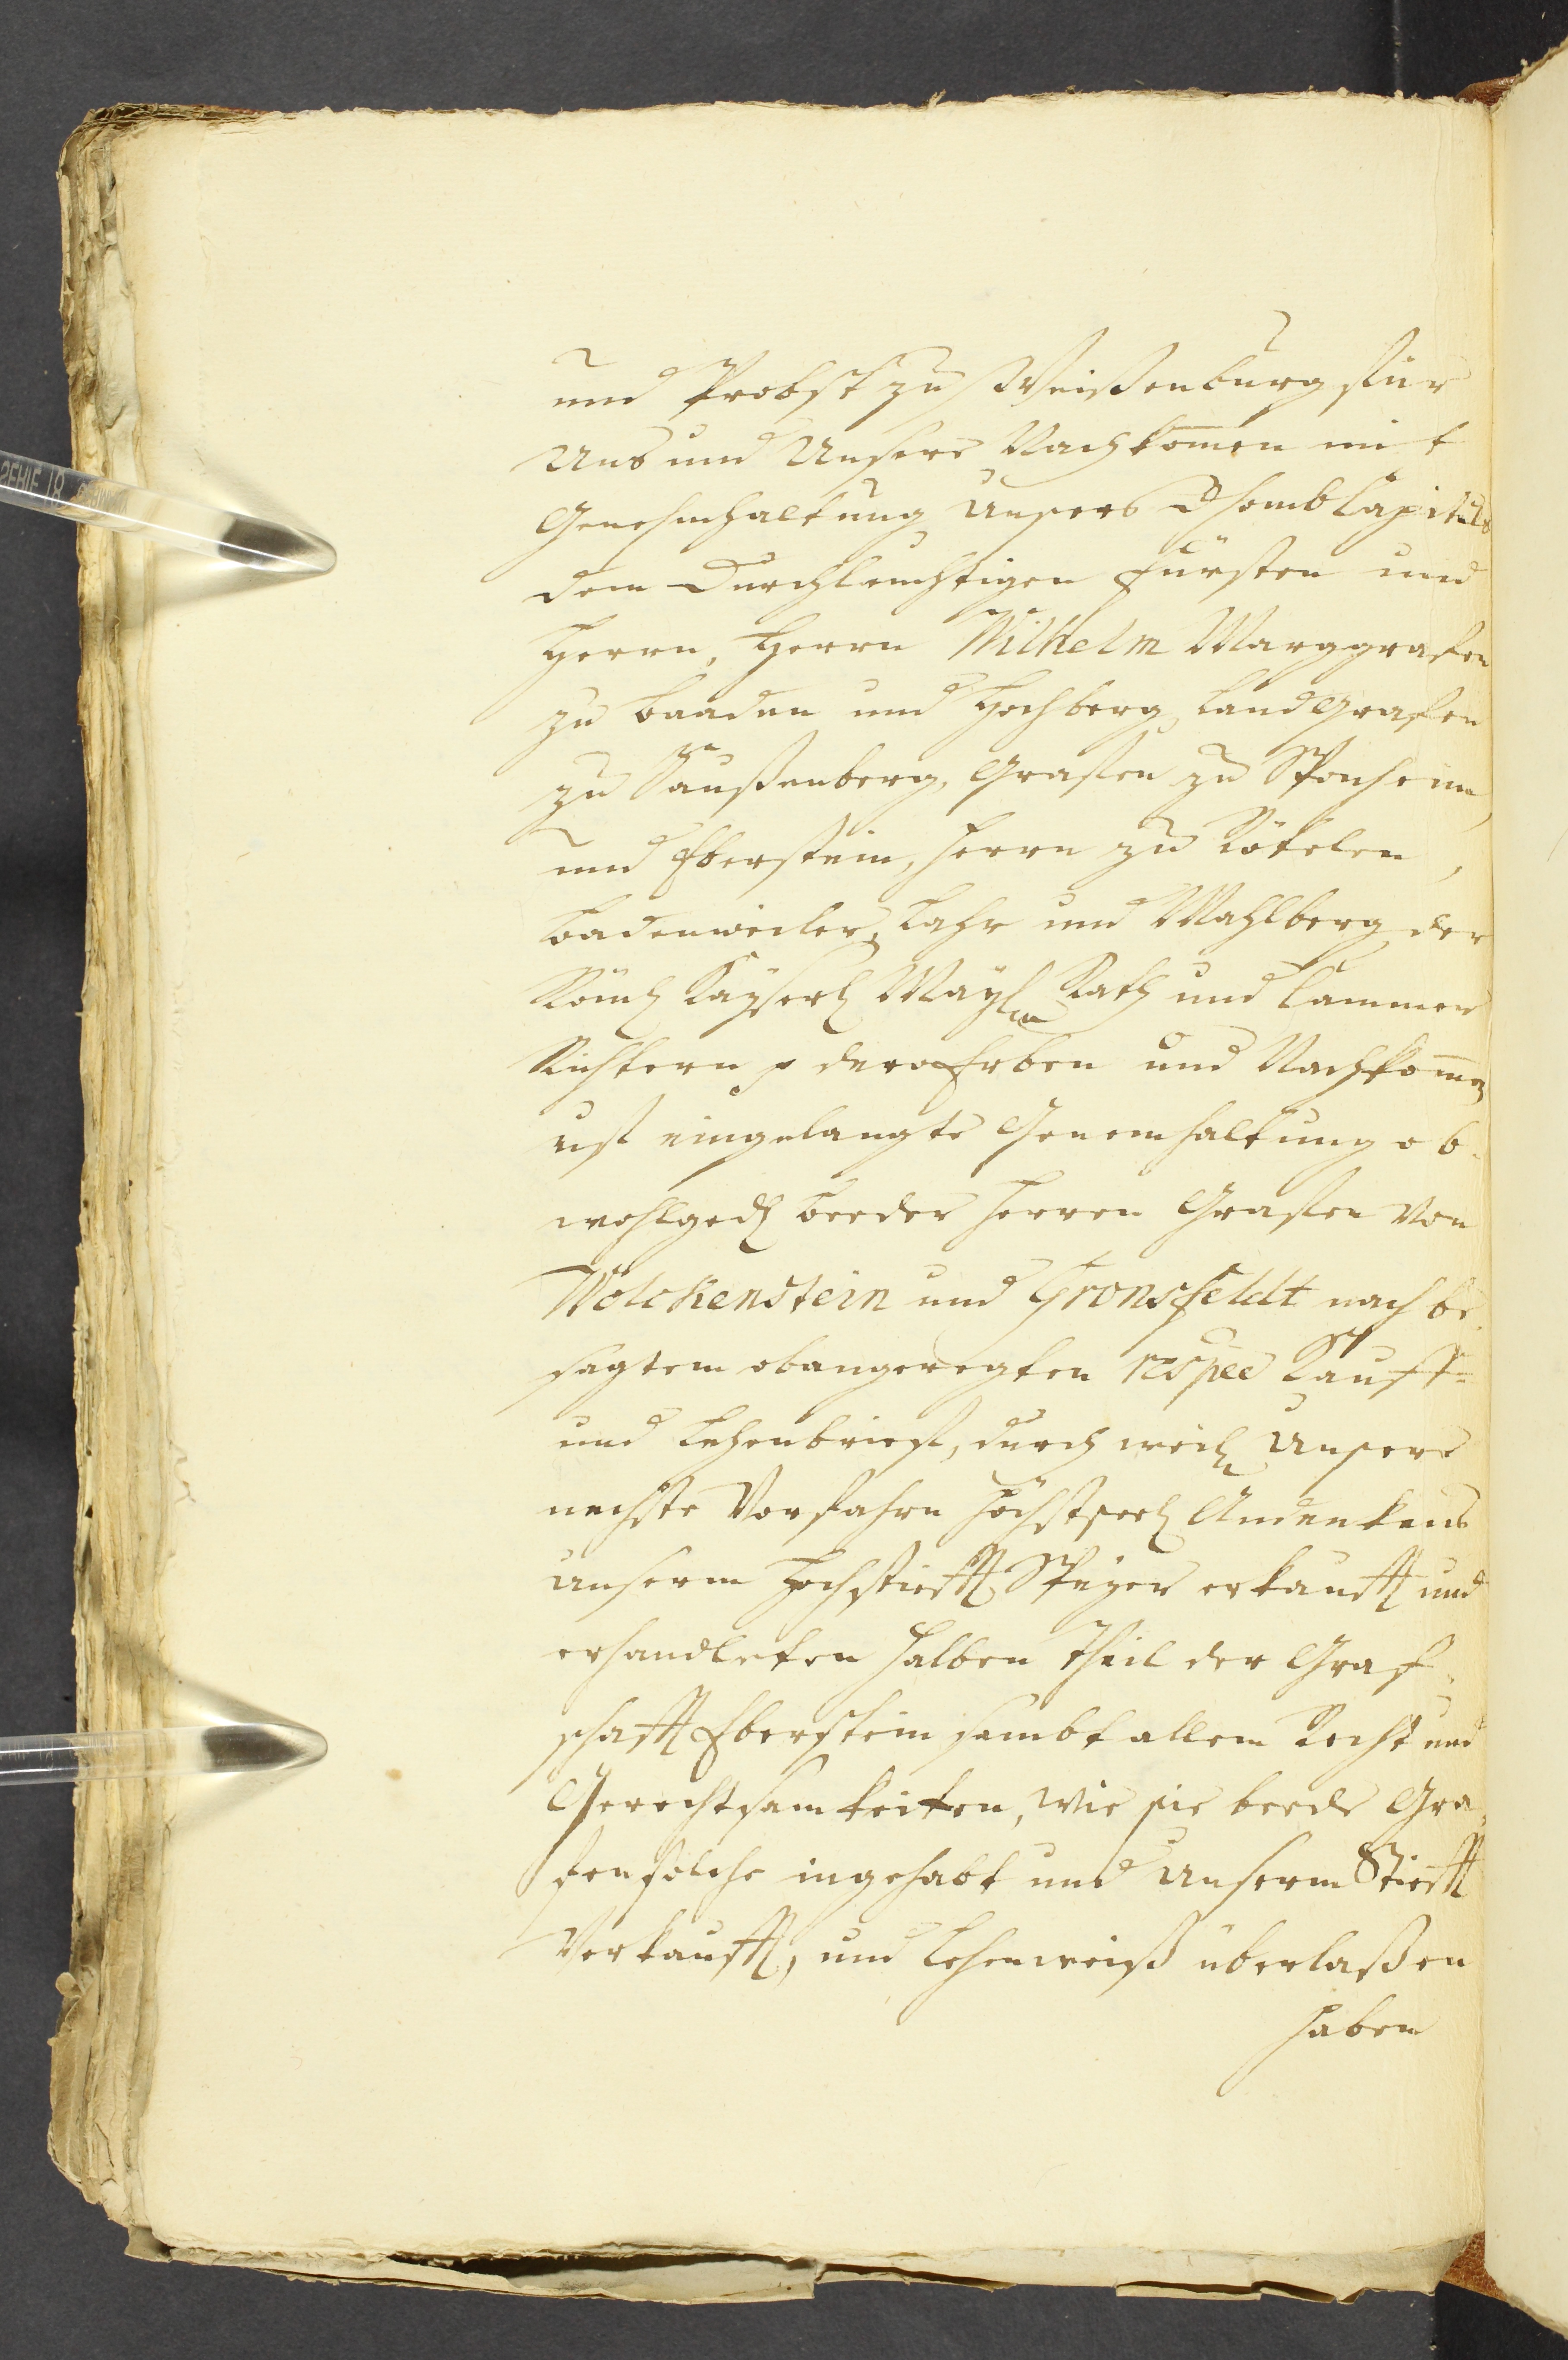 und Probst zu Weißenburg für
Uns und Unsere Nachkom̄en mit
Genehmhaltung Unsers Dhomb Capituls
dem Durchleuchtigen Fürsten und
Herrn, Herrn Wilhelm Marggrafen
zu Baaden und Hochberg, Landgrafen
zu Saußenberg, Grafen zu Sponheim
und Eberstein, Herrn zu Rötelen,
Badenweiler, Lahr und Mahlberg der
Römh Kayserl May Rath und Cammer
Richtern p dero Erben und Nachkom̄en
uff eingelangte Genemhaltung ob-
wohlgedh beeder Herren Grafen von
Wolckenstein und Gronsfeldt nach be-
sagtem obangeregten respee Kauff-
und Lehenbrieff, durch weil Unsere
nechste Vorfahrn höchstseel Andenkens
unserm Hochstiefft Speyer erkaufft und
erhandleten halben Theil der Graf-
schafft Eberstein sambt allem Recht und
Gerechtsamkeiten, wie sie beede Gra-
fen solche ingehabt und Unserm Stiefft
Verkaufft, und Lehenweiß überlaßen
haben